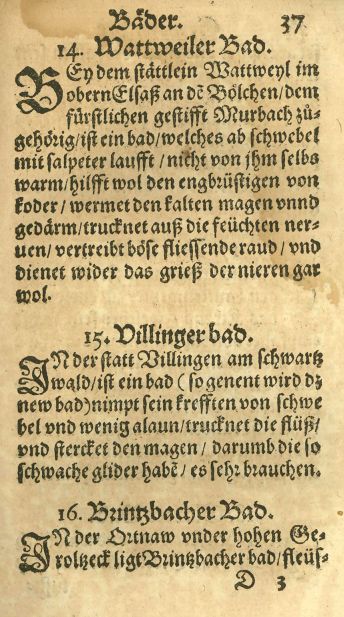 Bäder. 37
14. Wattweiler Bad.
BEy dem stättlein Wattweyl im
obern Elsaß an dẽ Bölchen / dem
fürstlichen gestifft Murbach zů-
gehörig / ist ein bad / welches ab schwebel
mit salpeter laufft / nicht von jhm selbs
warm / hilfft wol den engbrüstigen von
koder / wermet den kalten magen vnnd
gedärm / trucknet auß die feüchten ner-
uen / vertreibt böse fliessende raud / vnd
dienet wider das grieß der nieren gar
wol.
15. Villinger bad.
IN der statt Villingen am schwartz
wald / ist ein bad ( so genent wird dz
new bad) nimpt sein krefften von schwe
bel vnd wenig alaun / trucknet die flüß /
vnd stercket den magen / darumb die so
schwache glider habẽ / es sehr brauchen.
16. Brintzbacher Bad.
IN der Ortnaw vnder hohen Ge-
roltzeck ligt Brintzbacher bad / fleüs-
D 3